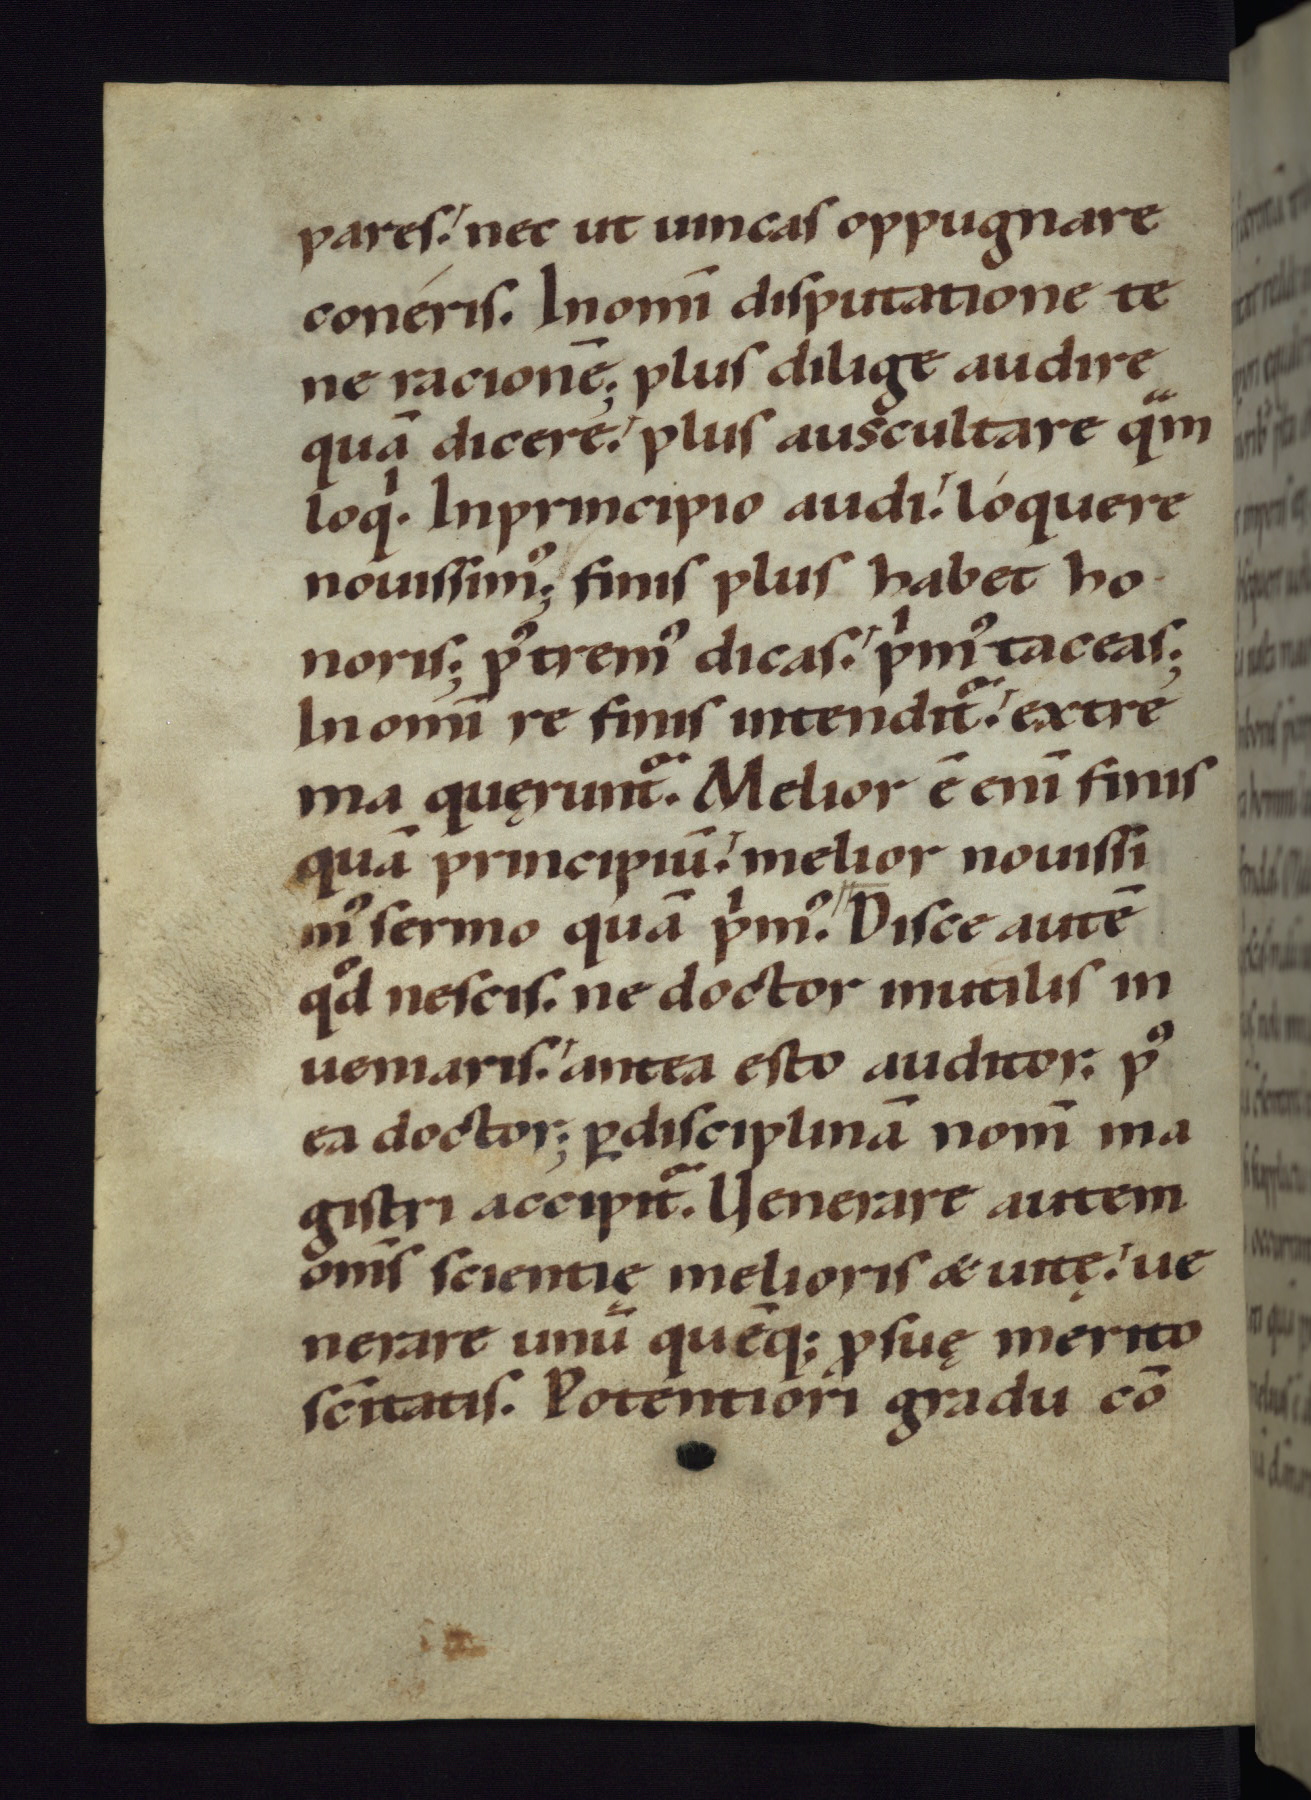 pares. nec ut uincas oppugnare
conéris. In omī disputatione te
ne racionē; plus dilige audire
quā dicere. plus auscultare qͣm
loqͥ. In principio audi. lóquere
nouissimꝰ; finis plus habet ho
noris; pꝰtremꝰ dicas. pͥmꝰ taceas;
In omī re finis intenditᷣ. extre
ma quęruntᷣ. Melior ē enī finis
quā principiū. melior nouissi
mꝰ sermo quā pͥmꝰ. Disce autē
qͦd nescis. ne doctor inutilis in
ueniaris. antea esto auditor. pꝰ
ea doctor; ꝑ disciplinā nom̄ ma
gistri accipitᷣ. Uenerare autem
om̄s scientię melioris & uitę. ue
nerare unū quēq; ꝓ suę mérito
sc̄itatis. Potentiori gradu cō